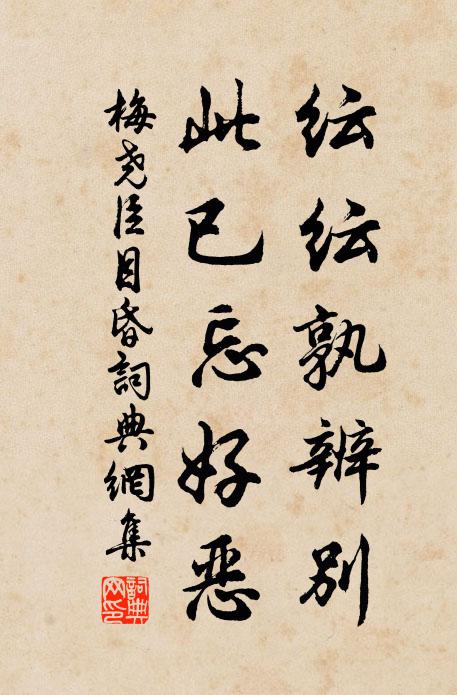 纭纭孰辨别
此已忘好恶
梅尧臣目昏詞典網集
詞典網印